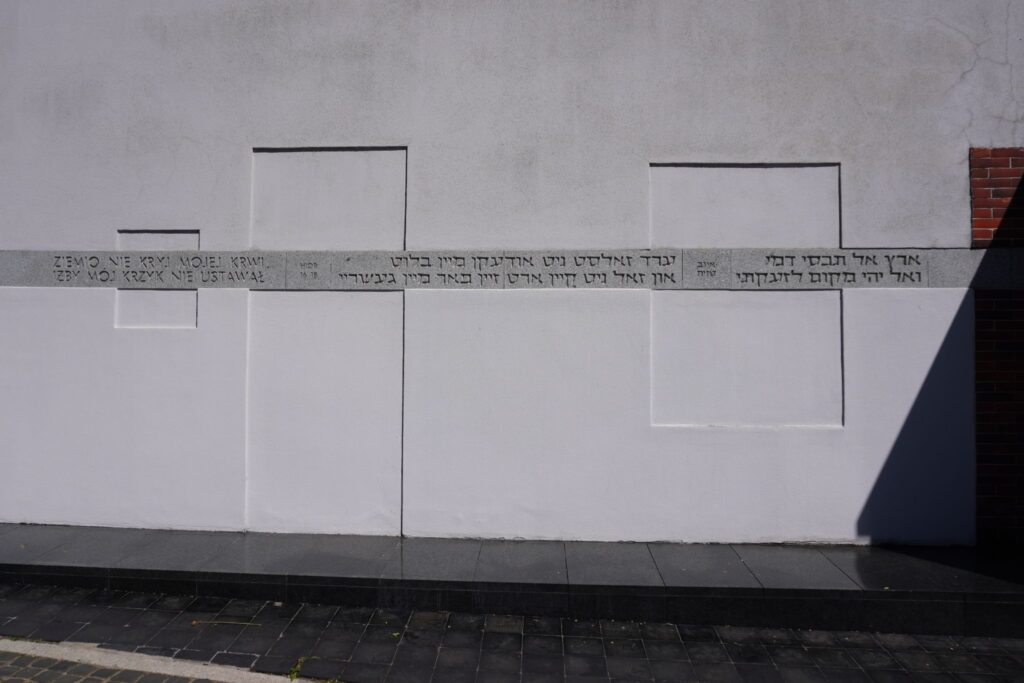 ZIEMIO, NIE KRYJ MOJEJ KRWI,
IŻBY MÓJ KRZYK NIE USTAWAŁ
HIOB
16.18
ערד זאלסט ניט צודעקן מיין בלוט
און זאל ניט קיין ארט זיין פאר מיין געשריי
איוב
טז יח
ארץ אל תכסי דמי
ואל יהי מקום לזעקתי